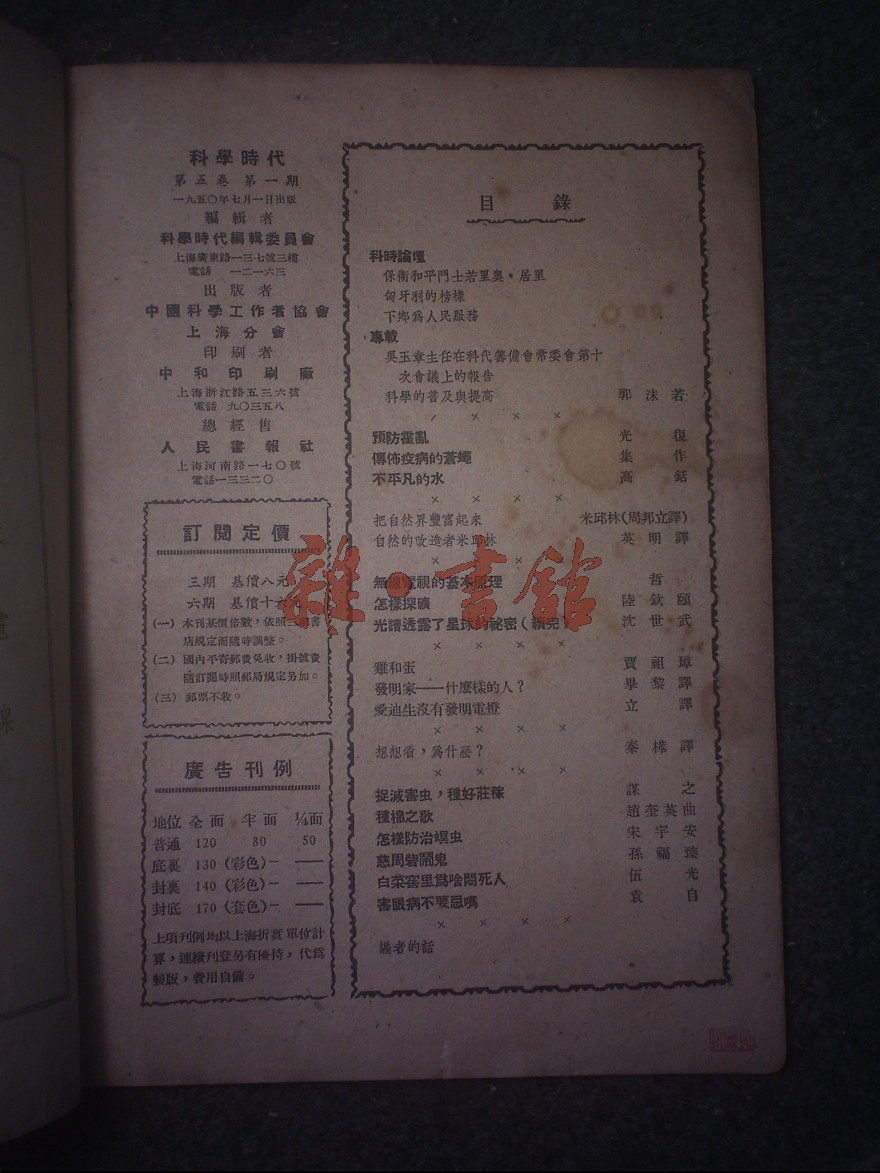 科學時代
第五卷 第一期
一九五〇年七月一日出版
編輯者
科學時代編輯委員會
上海廣東路一三七號三樓
電話 一二一六三
出版者
中國科學工作者協會
上海分會
印刷者
中和印刷廠
上海浙江路五三六號
電話 九〇三五八
總經售
人民書報社
上海河南路一七〇號
電話一三三二〇
訂閱定價
三期 基價八元
六期 基價十六元
(一) 本刊基價倍數,依照三聯書
店規定而隨時調整。
(二) 國內平寄郵費免收,掛號費
隨訂閱時照郵局規定另加。
(三) 郵票不收。
廣告刊例
地位 全面 半面 ¼面
普通 120 80 50
底裏 130 (彩色)— ——
封裏 140 (彩色)— ——
封底 170 (套色)— ——
上項刊例均以上海折實單位計
算,連續刊登另有優待,代爲
製版,費用自備。
目錄
科時論壇
保衛和平鬥士若里奧·居里
匈牙利的榜樣
下鄉爲人民服務
專載
吳玉章主任在科代籌備會常委會第十
次會議上的報告
科學的普及與提高 郭沫若
× × × ×
預防霍亂 光復
傳佈疫病的蒼蠅 集作
不平凡的水 高銛
× × × ×
把自然界豐富起來 米邱林(周邦立譯)
自然的改造者米邱林 英明譯
× × × ×
無線電視的基本原理 哲
怎樣探礦 陸欽頤
光譜透露了星球的祕密(續完) 沈世武
× × × ×
雞和蛋 賈祖璋
發明家——什麼樣的人? 畢黎譯
愛迪生沒有發明電燈 立譯
× × × ×
想想看,爲什麼? 秦樺譯
× × × ×
捉滅害虫,種好莊稼 謀之
種棉之歌 趙奎英曲
怎樣防治螟虫 宋宇安
慈周砦鬧鬼 孫福臻
白菜窖里爲啥悶死人 伍光
害眼病不要忌嘴 袁自
× × × ×
編者的話
雜·書館